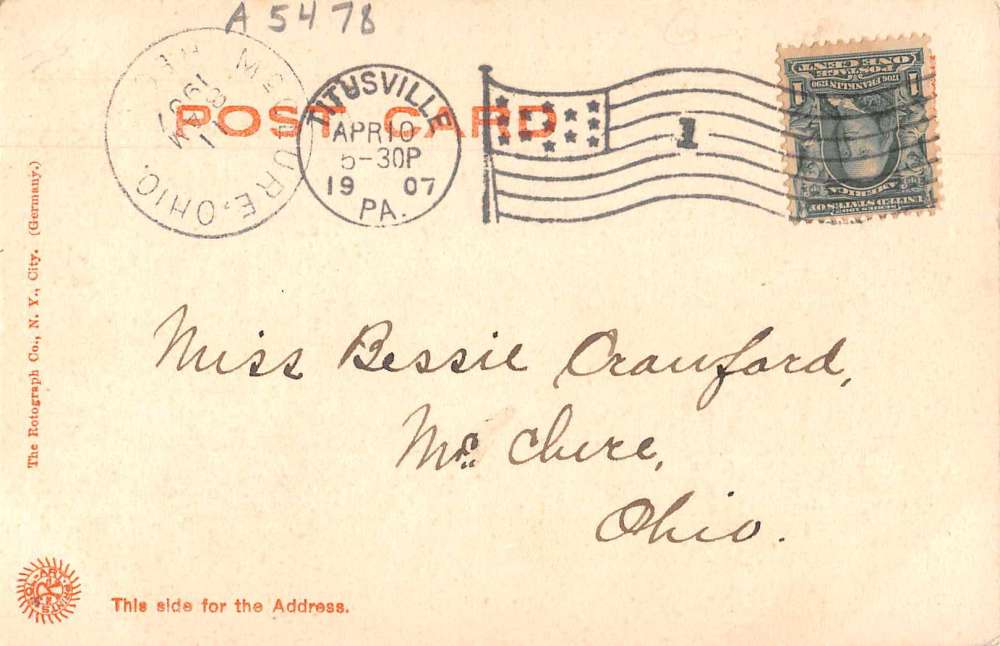 A 5478
POST CARD
TITUSVILLE
APR 10
5-30P
19 07
PA.
McCLURE, OHIO.
1
1706 FRANKLIN 1790
POSTAGE
ONE CENT
1 1
SERIES 1902
UNITED STATES OF
AMERICA
The Rotograph Co., N. Y., City. (Germany.)
Miss Bessie Crawford,
Mc Clure,
Ohio.
This side for the Address.